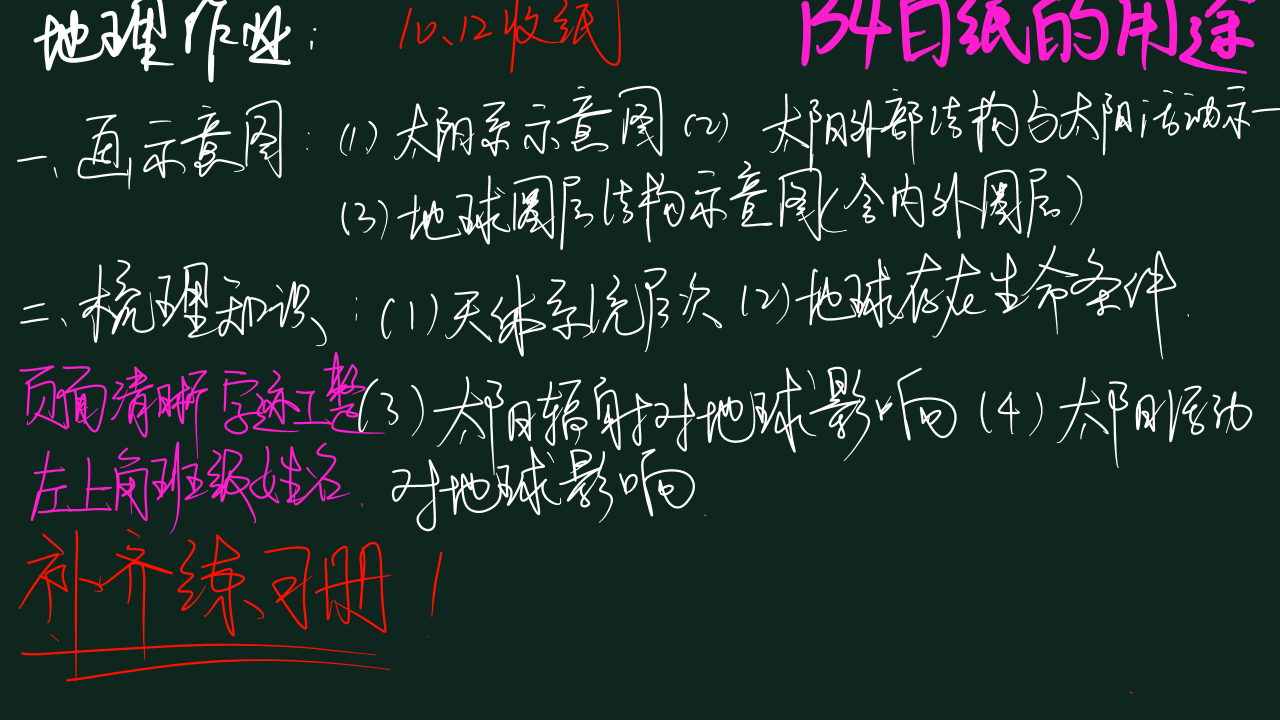 地理作业: 10、12收纸 B4白纸的用途
一、画示意图:(1)太阳系示意图(2)太阳外部结构与太阳活动示一
(3)地球圈层结构示意图(含内外圈层)
二、梳理知识:(1)天体系统层次(2)地球存在生命条件.
页面清晰 字迹工整
(3)太阳辐射对地球影响(4)太阳活动
左上角班级姓名.
对地球影响.
补齐练习册!